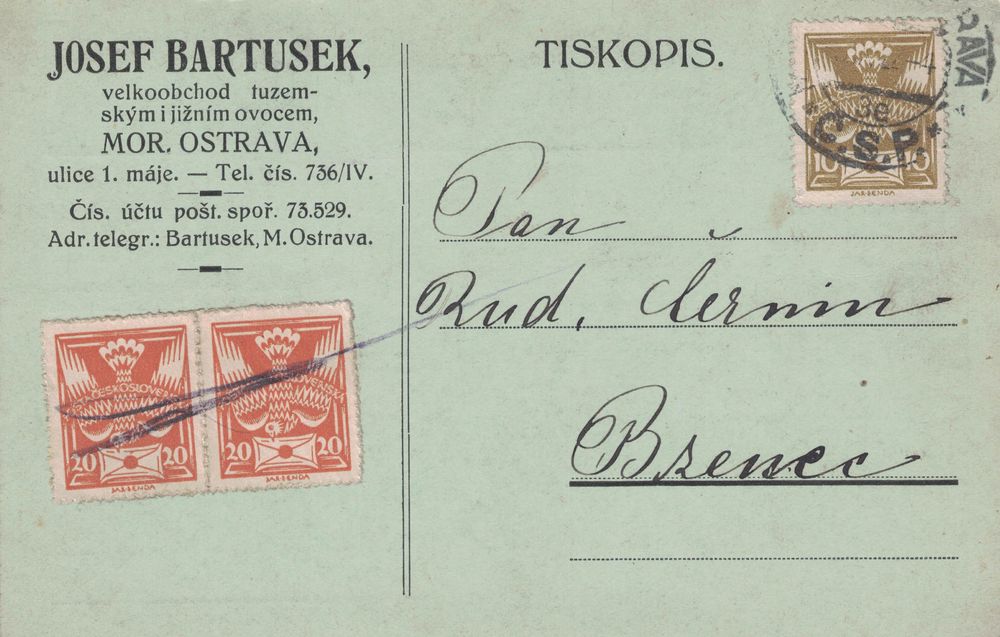 JOSEF BARTUSEK,
velkoobchod tuzem-
ským i jižním ovocem,
MOR. OSTRAVA,
ulice 1. máje. — Tel. čís. 736/IV.
Čís. účtu pošt. spoř. 73.529.
Adr. telegr.: Bartusek, M. Ostrava.
TISKOPIS.
Pan
Rud. Černín
Bzenec
10 10
JAR.BENDA
Č.S.P.
RAVA
ČESKOSLOVENSKÁ
20 20
JAR.BENDA
20 20
JAR.BENDA